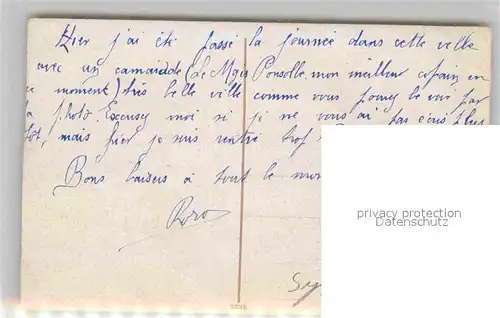 Hier j'ai été passé la journée dans cette ville
avec un camaidde (Le Mgis Ponsolle mon meilleur copain en
ce moment) très belle ville comme vous pouvez le voir par
la photo. Excusez moi si je ne vous ai pas écris plus
tôt, mais hier je suis rentré trop
Bons baisers à tout le mon
Roro
privacy protection
Datenschutz